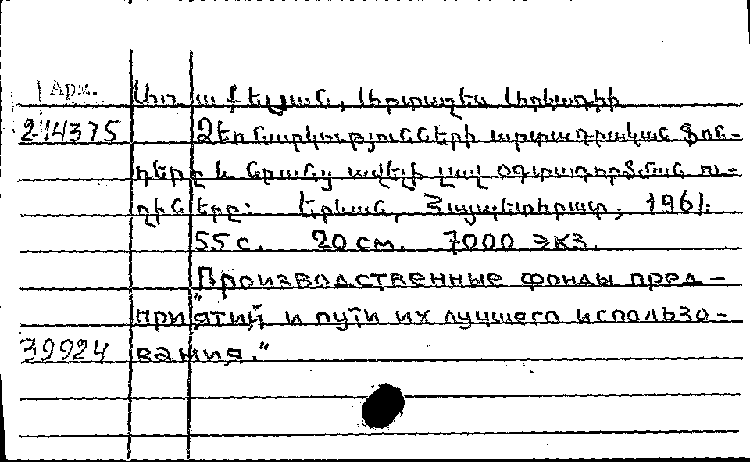 Арм.
աքելյան, Արտաշես Արկադիի
2-14375 Ձեռնարկությունների արտադրական ֆոն-
դերը և նրանց ավելի լավ օգտագործման ու-
ղիները: Երևան, Հայպետհրատ, 1961.
55 с. 20 см. 7000 экз.
"Производственные фонды пред-
приятий и пути их лучшего использо-
39924 вания."